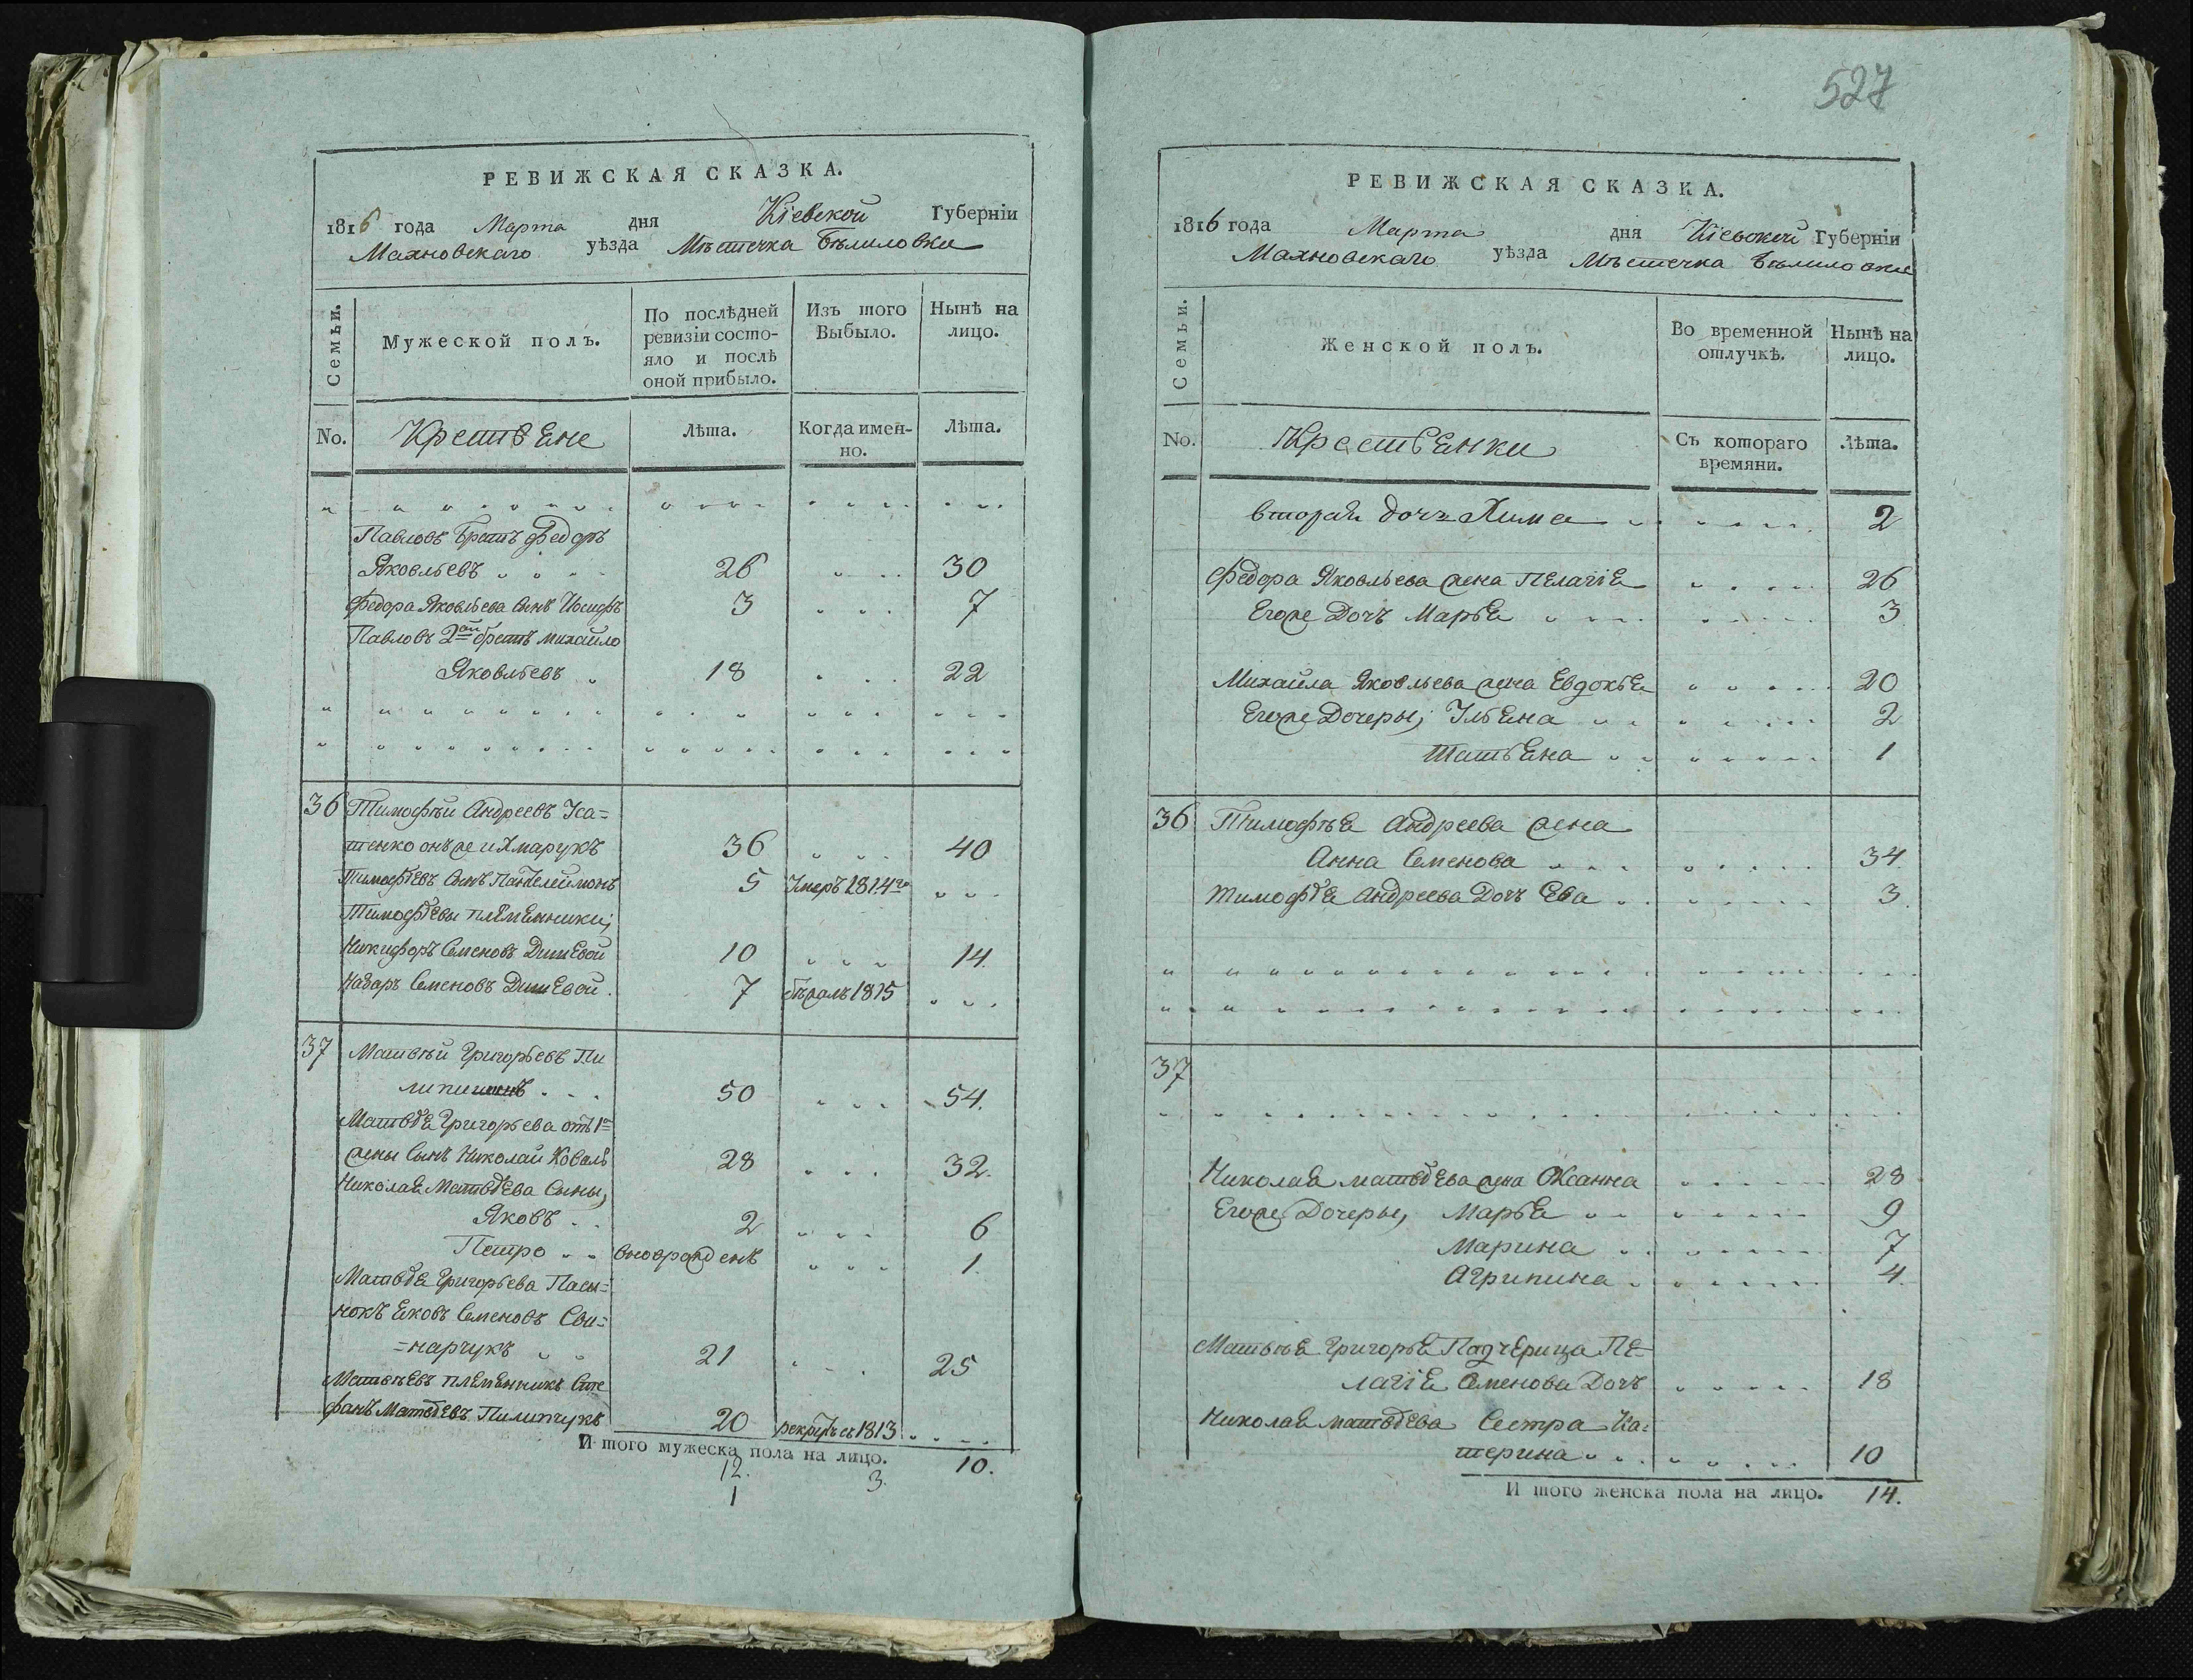 РЕВИЖСКАЯ СКАЗКА.
1816 года Марта дня Кіевской Губерніи
Махновскаго уѣзда Мѣстечка Бѣлиловки
Семьи.
Мужеской полъ.
По послѣдней ревизіи состояло и послѣ оной прибыло.
Изъ того Выбыло.
Нынѣ на лицо.
No.
Крестьяне
Лѣта.
Когда именно.
Лѣта.
Павловъ братъ Федоръ
Яковльевъ 26 30
Федора Яковльева Сынъ Иосифъ 3 7
Павловъ 2ой братъ Михайло
Яковльевъ 18 22
36 Тимофѣй Андреевъ Уса=
тенко онъ же и Хмарукъ 36 40
Тимофѣевъ Сынъ Пантелеймонъ 5 Умеръ 1814го
Тимофѣевы племянники;
Никифоръ Семеновъ 10 14.
Назаръ Семеновъ 7 бѣжалъ 1815
37 Матвѣй Григорьевъ Пи
50 54.
Матвѣя Григорьева отъ 1й
жены Сынъ Николай Коваль 28 32.
Николая Матвѣева Сыны,
Яковъ 2 6
Петро вноврожденъ 1.
Матвѣя Григорьева Пасы=
нокъ Яковъ Семеновъ Сви=
=нарчукъ 21 25
Матвѣевъ племянникъ Сте
фанъ Матвѣевъ Пилипчукъ 20 1813
И того мужеска пола на лицо. 10.
12. 3.
1
527
РЕВИЖСКАЯ СКАЗКА.
1816 года Марта дня Кіевской Губерніи
Махновскаго уѣзда Мѣстечка Бѣлиловки
Семьи.
Женской полъ.
Во временной отлучкѣ.
Нынѣ на лицо.
No.
Крестьянки
Съ котораго времяни.
Лѣта.
вторая дочъ Хима 2
Федора Яковльева жена Пелагія 26
Егоже Дочъ Марья 3
Михайла Яковльева жена Евдокья 20
Егоже Дочеры; Ульяна 2
Татьяна 1
36 Тимофѣя Андреева жена
Анна Семенова 34.
Тимофѣя Андреева Дочъ Ева 3.
37
Николая матвѣева жена Оксанна 28
Егоже Дочеры, Марья 9
Марина 7
Агрипина 4.
Матвѣя Григорья Падчерица Пе-
лагія Семенова Дочъ 18
Николая матвѣева Сестра Ка=
терина 10
И того женска пола на лицо. 14.